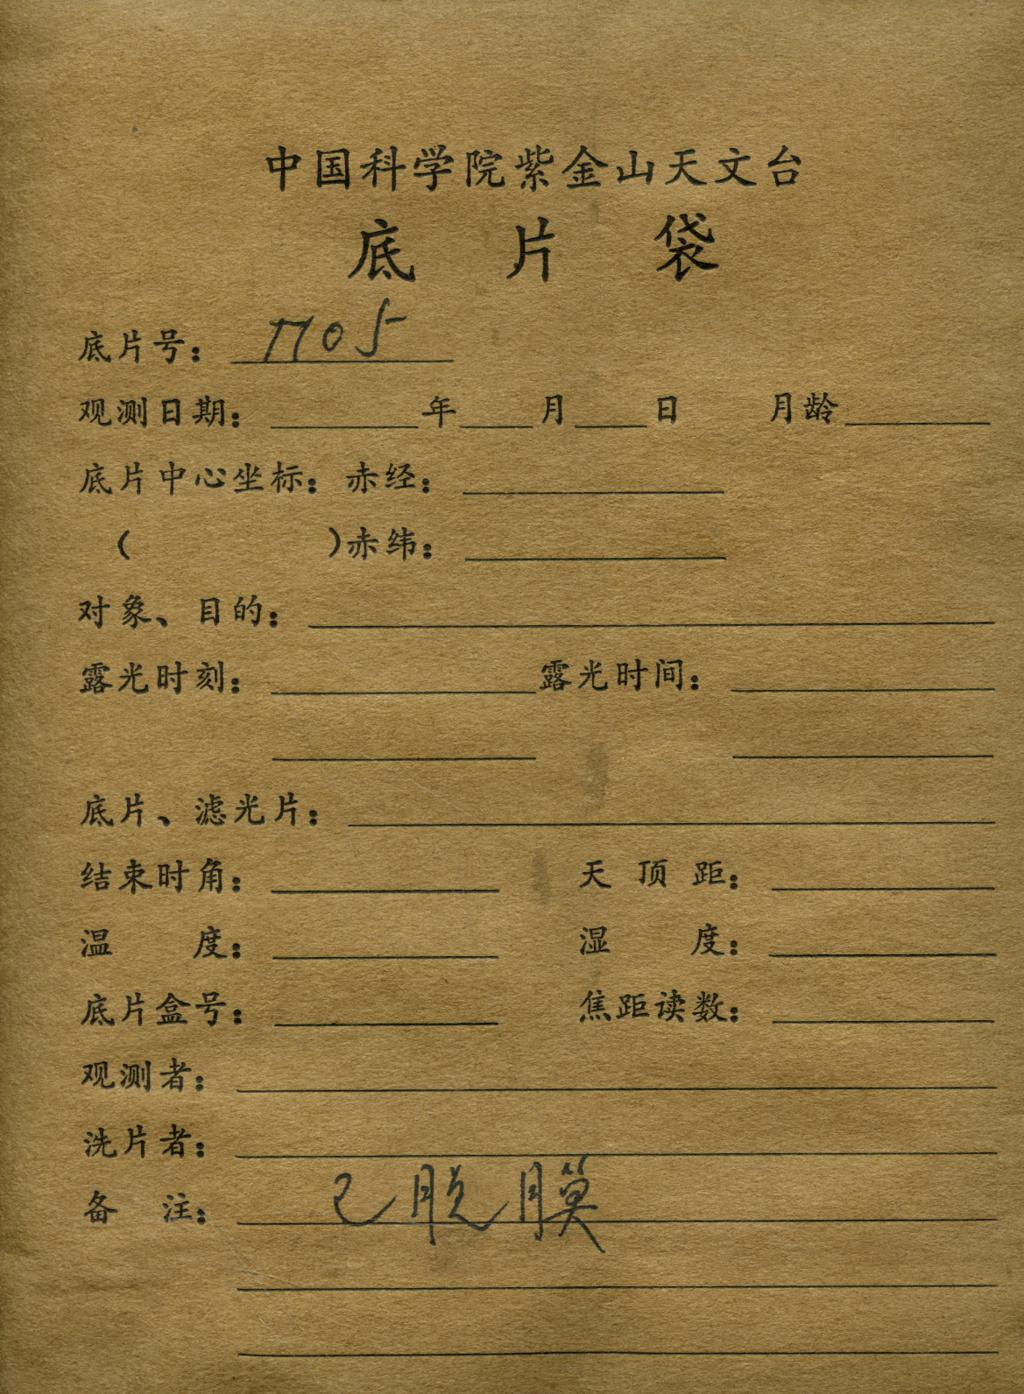 中国科学院紫金山天文台
底片袋
底片号： 7705
观测日期： 年 月 日 月龄
底片中心坐标：赤经：
（ ）赤纬：
对象、目的：
露光时刻： 露光时间：
底片、滤光片：
结束时角： 天顶距：
温度： 湿度：
底片盒号： 焦距读数：
观测者：
洗片者：
备注： 已脱膜